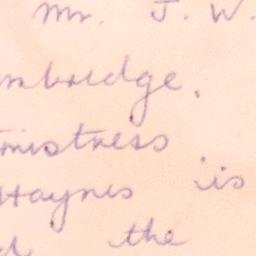 Mr. J. W.
mbridge.
mistress
Haynes is
d the